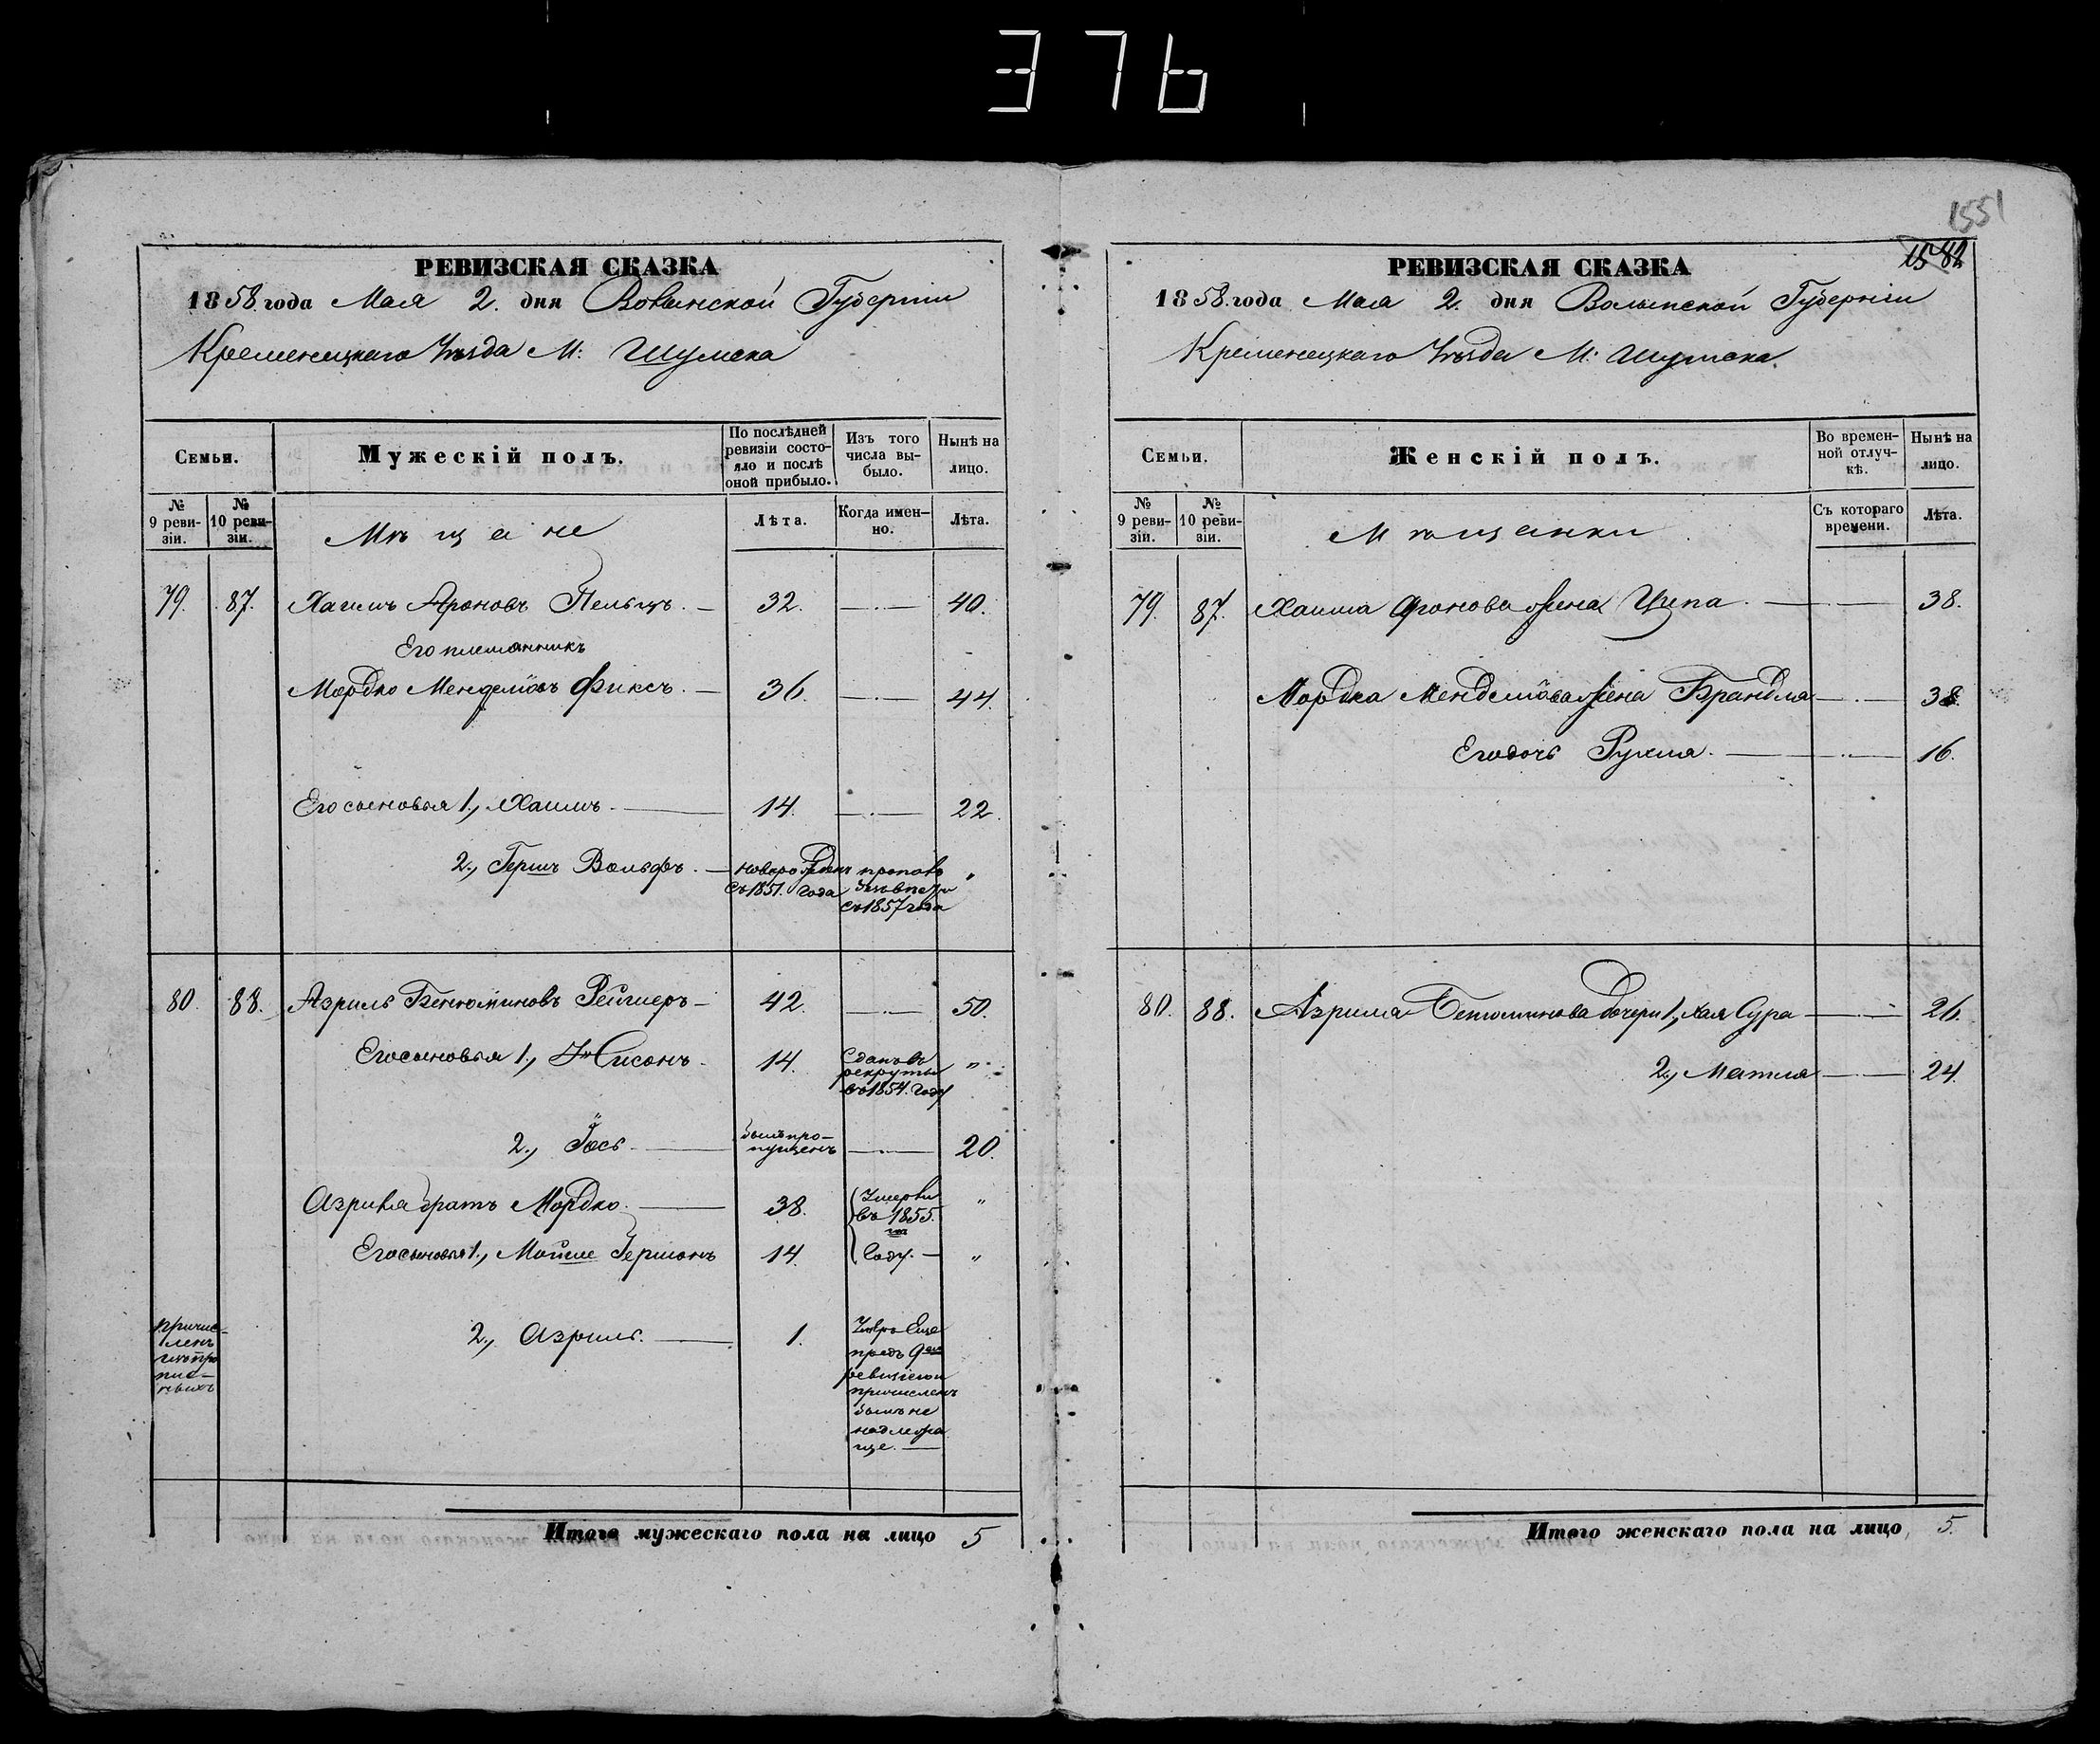 376
1551
1582
РЕВИЗСКАЯ СКАЗКА
1858 года Мая 2. дня Волынской Губерніи
Кременецкаго Уѣзда М: Шумска
Семьи.
Мужескій полъ.
По послѣдней ревизіи состояло и послѣ оной прибыло.
Изъ того числа выбыло.
Нынѣ на лицо.
№ 9 ревизіи.
№ 10 ревизіи.
Мѣщане
Лѣта.
Когда именно.
Лѣта.
79. 87. Хаимъ Ароновъ Пельцъ. 32. 40.
Его племянникъ
Мордко Менделіовъ Фиксъ. 36. 44.
Его сыновья 1., Хаимъ. 14. 22.
2., Гершъ Вольфъ. новорожден пропалъ "
съ 1851. года безъ вести
съ 1857 года
80. 88. Азриль Бенюминовъ Рейгшеръ 42. 50.
Его сыновья 1., Нисонъ. 14. Сданъ въ "
рекруты
въ 1854. году
2., Іось. былъ пропущенъ 20.
Азриля братъ Мордко. 38. Умерли "
въ 1855.
Его сыновья 1., Мойше Гершонъ 14. году. "
2., Азриль. 1. Умеръ еще
предъ 9ю
ревизіею
причисленъ
былъ не
надлежа
ще.
причисленъ
Итого мужескаго пола на лицо 5
РЕВИЗСКАЯ СКАЗКА
1858. года Мая 2. дня Волынской Губерніи
Кременецкаго Уѣзда М: Шумска.
Семьи.
Женскій полъ.
Во временной отлучкѣ.
Нынѣ на лицо.
№ 9 ревизіи.
№ 10 ревизіи.
Мѣщанки
Съ котораго времени.
Лѣта.
79. 87. Хаима Аронова жена Ципа. 38.
Мордка Менделіова жена Брандля 38.
Его дочь Рухля. 16.
80. 88. Азриля Бенюминова дочери 1., Хая Сура 26.
2., Матля 24.
Итого женскаго пола на лицо 5.